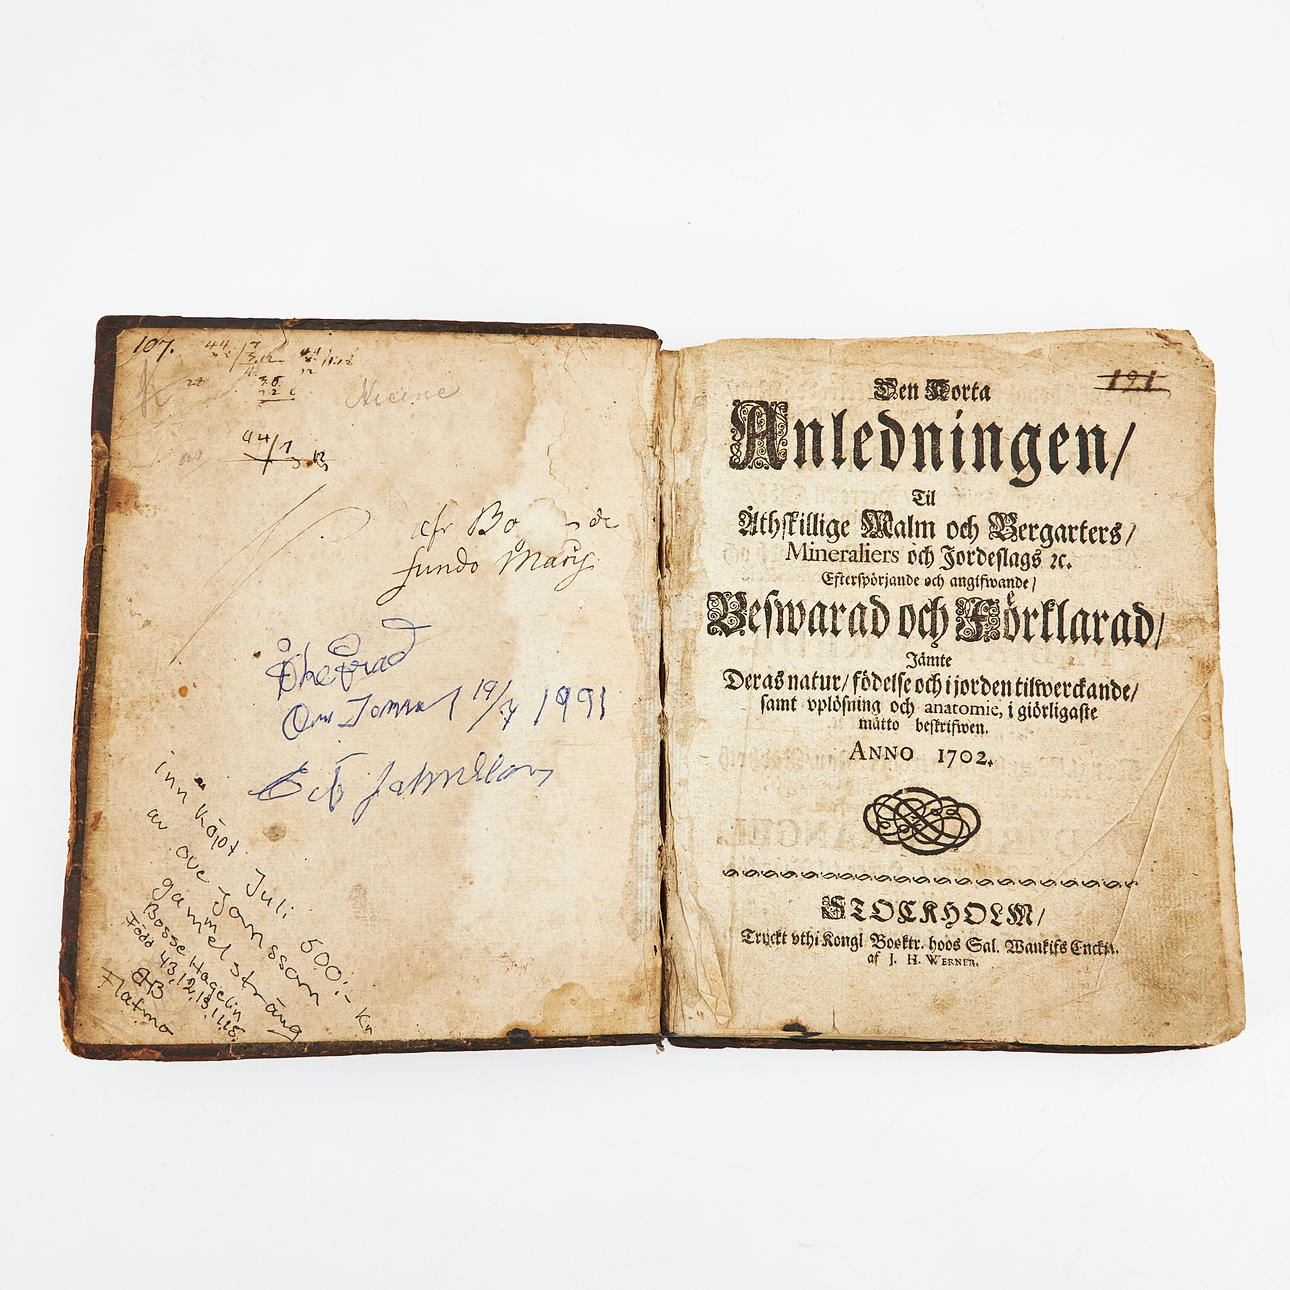 107.
44
7
3.12
12
44/7
Meine
afr Bo
fundo
19/7 1991
inn köpt Juli 500:- Kr
av ove Jonsson
gammel sträng
Bosse Hagelin
Född 43,12,13
HB
Flatmo
191
Den Korta
Anledningen/
Til
Åthskillige Malm och Bergarters/
Mineraliers och Jordeslags ꝛc.
Efterspörjande och angifwande/
Beswarad och Förklarad/
Jämte
Deras natur/ födelse och i jorden tillwerckande/
samt vplösning och anatomie, i giörligaste
måtto beskrifwen.
ANNO 1702.
STOCKHOLM/
Tryckt vthi Kongl. Boktr. hoos Sal. Wankifs Enckia.
af J. H. WERNER.